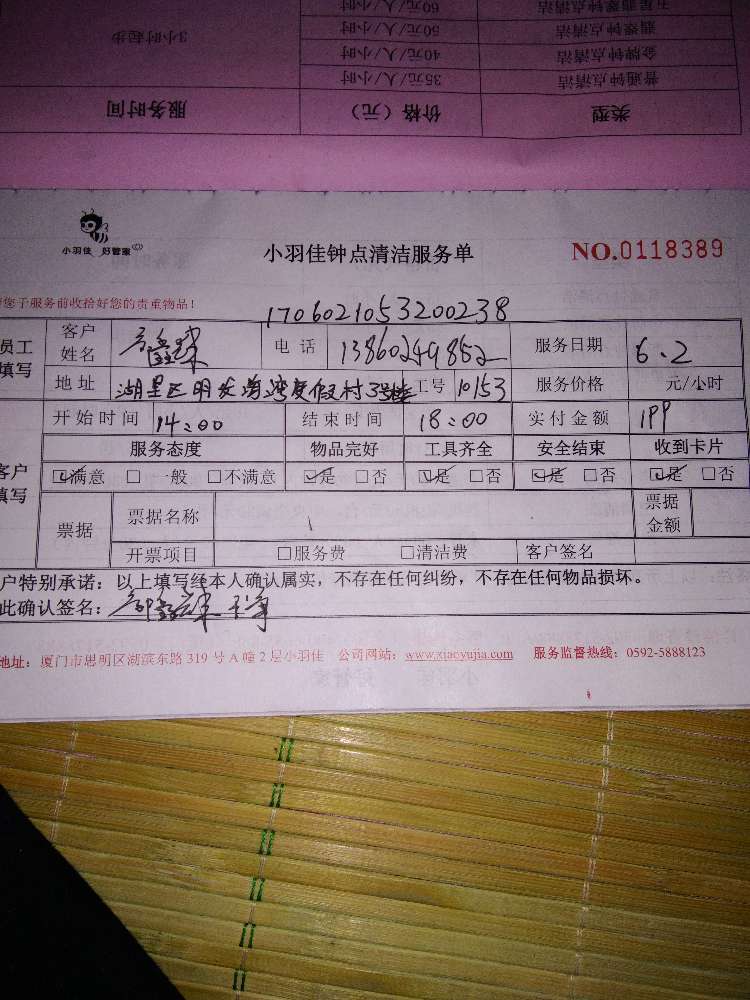 五星翡翠钟点清洁 60元/人/小时
翡翠钟点清洁 50元/人/小时
金牌钟点清洁 40元/人/小时 3小时起步
普通钟点清洁 35元/人/小时
类型 价格（元） 服务时间
小羽佳 好管家
小羽佳钟点清洁服务单
NO.0118389
您于服务前收拾好您的贵重物品！
1706021053200238
员工填写 客户姓名 电话 13860249852 服务日期 6.2
地址 湖里区明发海湾度假村3号楼 工号 10153 服务价格 元/小时
开始时间 14:00 结束时间 18:00 实付金额 199
客户填写 服务态度 物品完好 工具齐全 安全结束 收到卡片
☑满意 □一般 □不满意 ☑是 □否 ☑是 □否 ☑是 □否 ☑是 □否
票据 票据名称 票据金额
开票项目 □服务费 □清洁费 客户签名
户特别承诺：以上填写经本人确认属实，不存在任何纠纷，不存在任何物品损坏。
此确认签名：
地址：厦门市思明区湖滨东路 319 号 A 幢 2 层小羽佳 公司网站：www.xiaoyujia.com 服务监督热线：0592-5888123